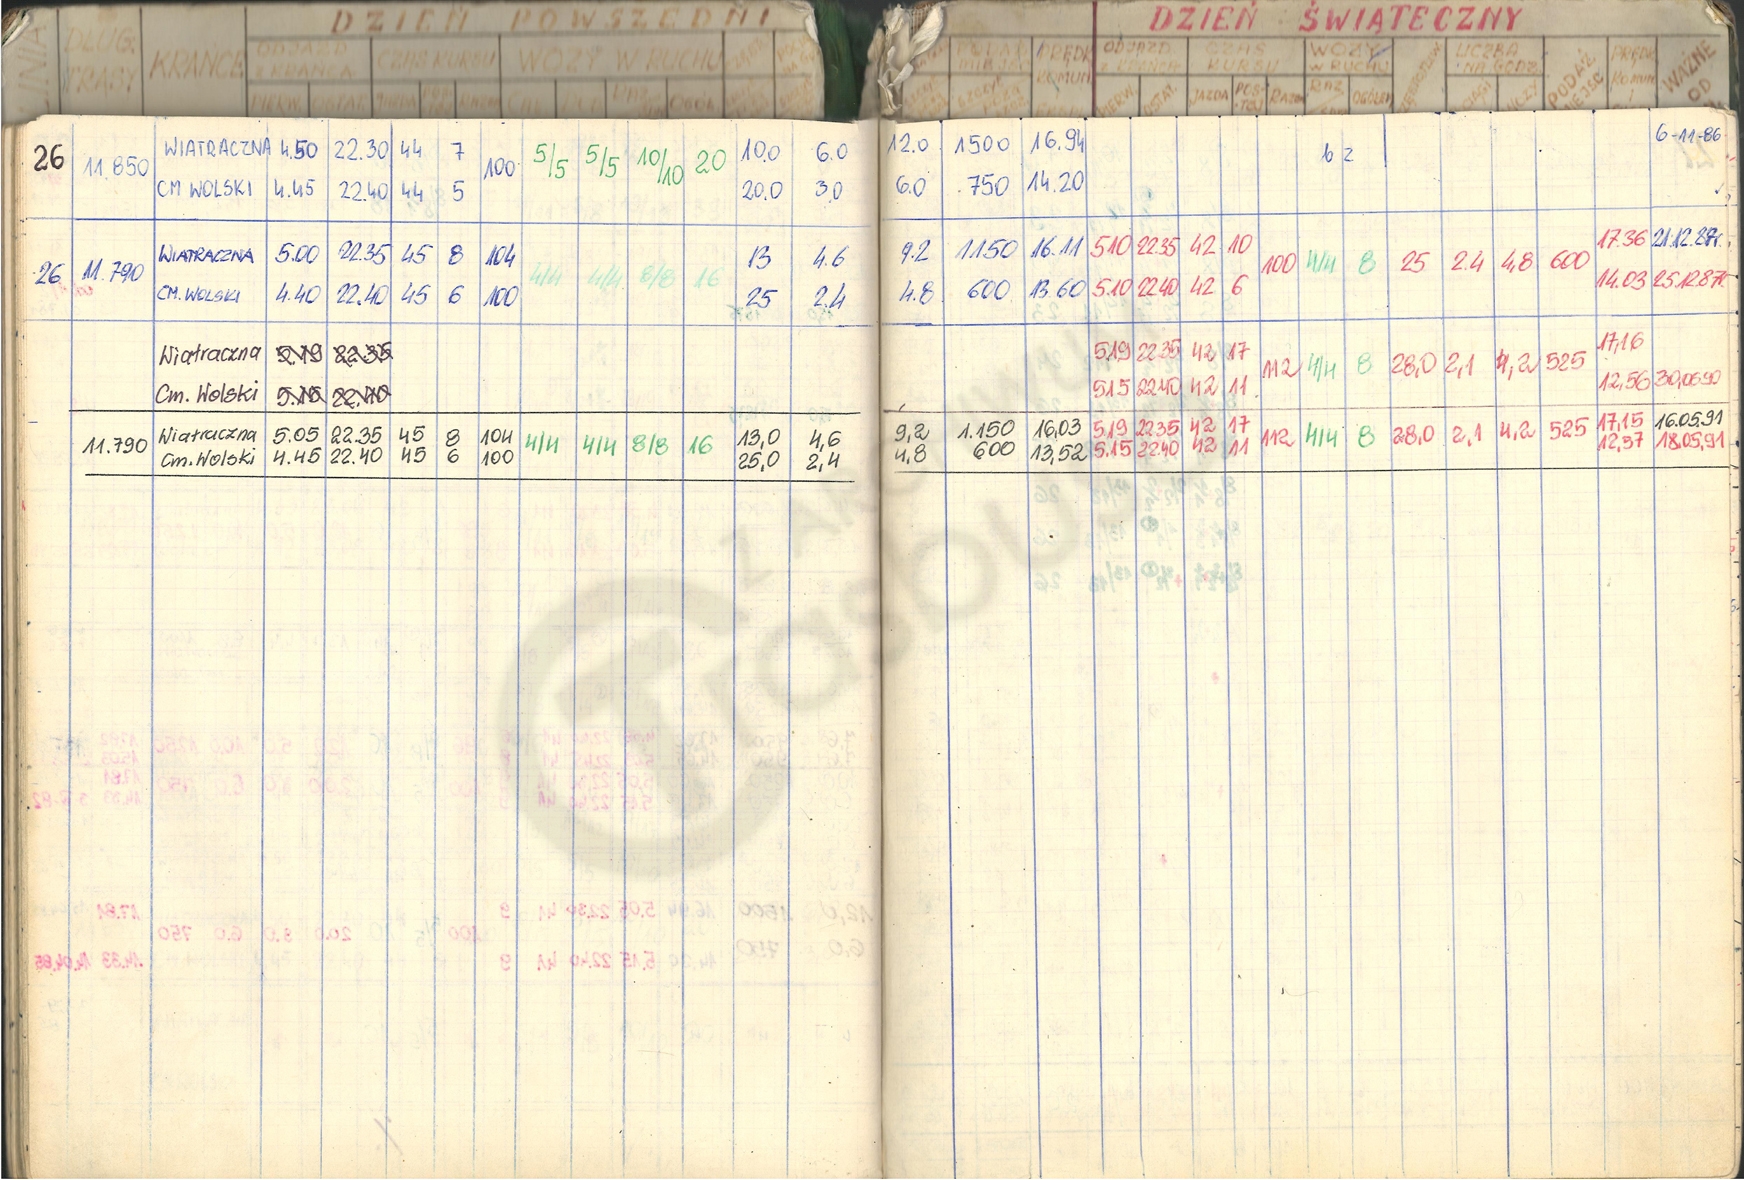 DZIEŃ POWSZEDNI
DZIEŃ ŚWIĄTECZNY
LINIA DŁUG. TRASY KRAŃCE ODJAZD Z KRAŃCA CZAS KURSU WOZY W RUCHU
PRĘDK. KOMUN. ODJAZD CZAS KURSU WOZY W RUCHU LICZBA NA GODZ. PODAŻ MIEJSC PRĘDK. KOMUN. WAŻNE OD
PIERW. OSTAT. JAZDA OGÓŁ.
PIERW. OSTAT. JAZDA POSTÓJ RAZEM
26 11.850 WIATRACZNA 4.50 22.30 44 7 100 5/5 5/5 10/10 20 10.0 6.0 12.0 1500 16.94 b z 6-11-86
CM WOLSKI 4.45 22.40 44 5 20.0 3.0 6.0 750 14.20
26 11.790 WIATRACZNA 5.00 22.35 45 8 104 4/4 4/4 8/8 16 13 4.6 9.2 1150 16.11 5.10 22.35 42 10 100 4/4 8 25 2.4 4,8 600 17.36 21.12.87r.
CM. WOLSKI 4.40 22.40 45 6 100 25 2.4 4.8 600 13.60 5.10 22.40 42 6 14.03 25.12.87r.
Wiatraczna 5.19 22.35 5.19 22.35 42 17 112 4/4 8 28,0 2,1 4,2 525 17,16
Cm. Wolski 5.15 22.40 5.15 22.40 42 11 12,56 30,06.90
11.790 Wiatraczna 5.05 22.35 45 8 104 4/4 4/4 8/8 16 13,0 4,6 9,2 1.150 16,03 5.19 22.35 42 17 112 4/4 8 28,0 2,1 4,2 525 17,15 16.05.91
Cm. Wolski 4.45 22.40 45 6 100 25,0 2,4 4,8 600 13,52 5.15 22.40 42 11 12,57 18.05.91
Trasbus